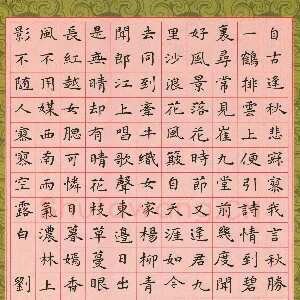 自古逢秋悲寂寥我言秋勝
一鶴排雲上便引詩情到碧
裏尋常見崔九堂前幾度聞
好風景落花時節又逢君
里沙浪淘風簸自天涯如今
去同到牽牛織女家楊柳青
聞郎江上唱歌聲東邊日出
是無晴却有晴花枝草蔓眼
長紅越女腮可憐日暮嫣香
風不用媒南氣濃林上
影不隨人空露白劉